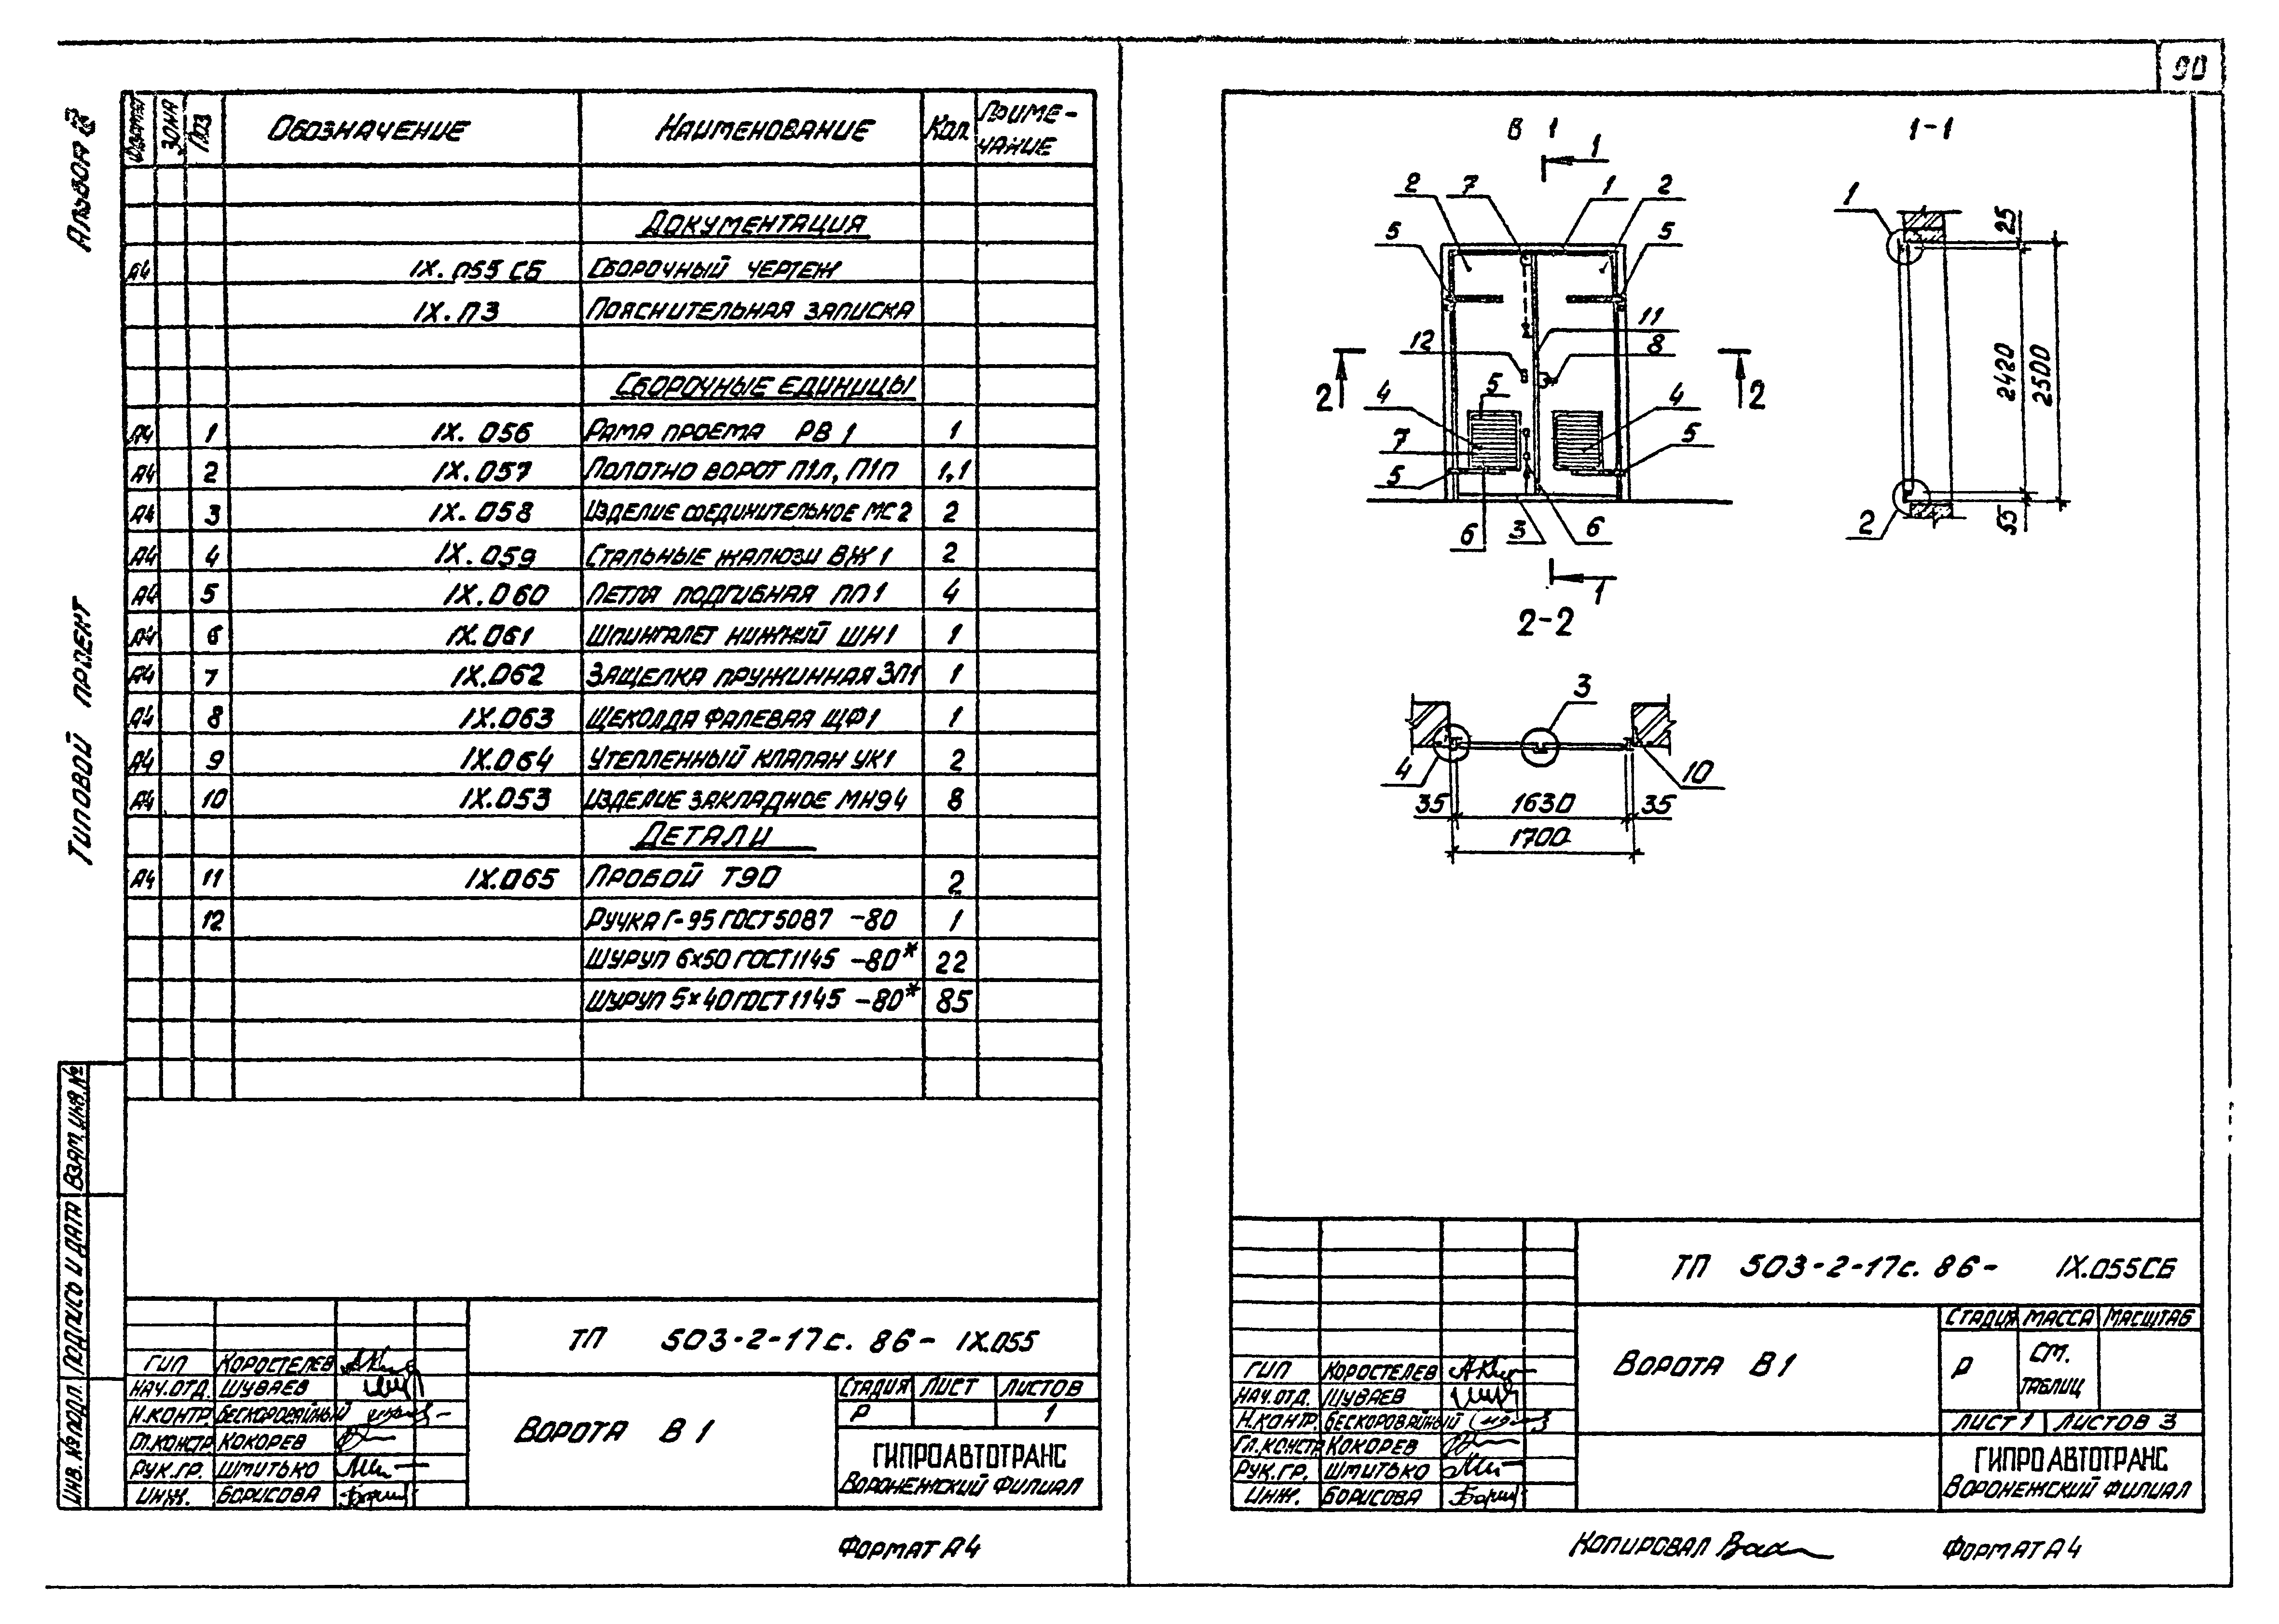 90
Альбом
Типовой проект
Взам. инв. №
Подпись и дата
Инв. № подл.
Формат Зона Поз Обозначение Наименование Кол. Примечание
Документация
А4 IX.055 СБ Сборочный чертеж
IX.ПЗ Пояснительная записка
Сборочные единицы
А4 1 IX.056 Рама проема РВ 1 1
А4 2 IX.057 Полотно ворот П1л, П1п 1,1
А4 3 IX.058 Изделие соединительное МС2 2
А4 4 IX.059 Стальные жалюзи ВЖ1 2
А4 5 IX.060 Петля подгибная ПП1 4
А4 6 IX.061 Шпингалет нижний ШН1 1
А4 7 IX.062 Защелка пружинная ЗП1 1
А4 8 IX.063 Щеколда фалевая ЩФ1 1
А4 9 IX.064 Утепленный клапан УК1 2
А4 10 IX.053 Изделие закладное МН94 8
Детали
А4 11 IX.065 Пробой Т90 2
12 Ручка Г-95 ГОСТ 5087 -80 1
Шуруп 6х50 ГОСТ 1145 -80* 22
Шуруп 5х40 ГОСТ 1145 -80* 85
ТП 503-2-17с. 86- IX.055
ГИП Коростелев
Нач.отд. Шуваев
Н.контр. Бескоровайный
Гл.констр. Кокорев
Рук.гр. Шмитько
Инж. Борисова
Ворота В 1
Стадия Лист Листов
Р 1
ГИПРОАВТОТРАНС
Воронежский филиал
Формат А4
В 1
1-1
1
2 7 1 2
5 5
11
12 8
2 2
4 5 4
7 5
5
6 3 6
1
2-2
1
25
2420
2500
55
2
3
4 10
35 1630 35
1700
ТП 503-2-17с. 86- IX.055СБ
ГИП Коростелев
Нач.отд. Шуваев
Н.контр. Бескоровайный
Гл.констр. Кокорев
Рук.гр. Шмитько
Инж. Борисова
Ворота В1
Стадия Масса Масштаб
Р См. таблиц
Лист 1 Листов 3
ГИПРОАВТОТРАНС
Воронежский филиал
Копировал
Формат А4